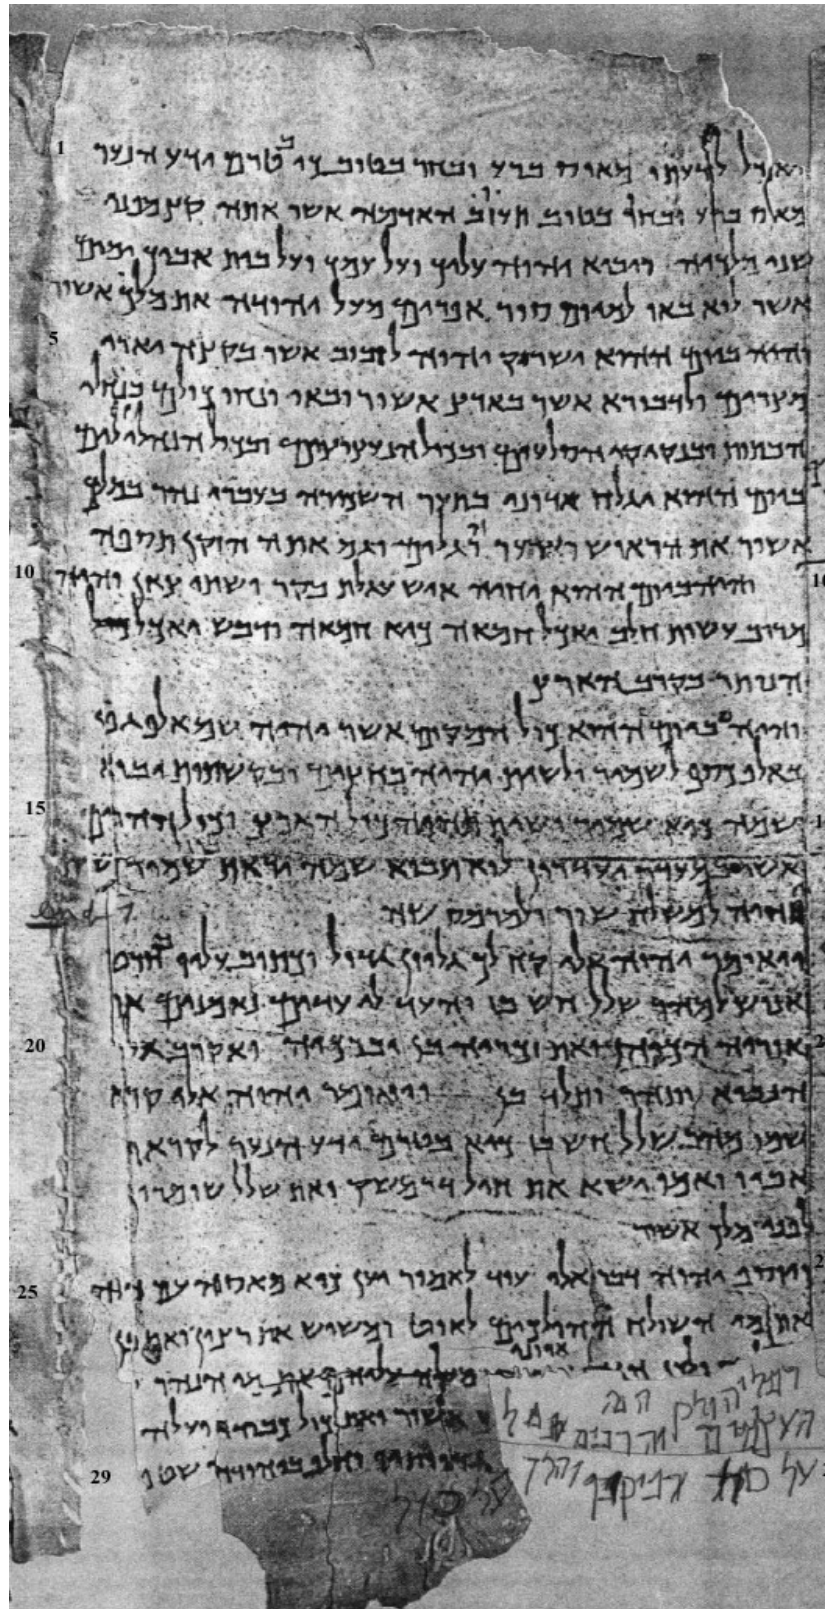 יאוכל לדעתו מאוס ברע ובחר בטוב כי בטרם ידע הנער
מאוס ברע ובחר בטוב תעזוב האדמה אשר אתה קץ מפני
שני מלכיה ויביא יהוה עליך ועל עמך ועל בית אביך ימים
אשר לוא באו למיום סור אפרים מעל יהודה את מלך אשור
והיה ביום ההוא ישרוק יהוה לזבוב אשר בקצה יארי
מצרים ולדבורא אשר בארץ אשור ובאו ונחו כולם בנחלי
הבתות ובנקיקי הסלעים ובכול הנעצוצים ובכול הנהלולים
ביום ההוא יגלח אדוני בתער השכירה בעברי נהר במלך
אשור את הראוש ושער רגלים וגם את הזקן תספה
והיה ביום ההוא יחיה איש עגלת בקר ושתי צאן והיה
מרוב עשות חלב יאכל חמאה כיא חמאה ודבש יאכל כול
הנותר בקרב הארץ
והיה ביום ההוא כול המקום אשר יהיה שם אלף גפן
באלף כסף לשמיר ולשית יהיה בחצים ובקשתות יבוא
שמה כיא שמיר ושית תהיה כול הארץ וכול ההרים
אשר במעדר יעדרון לוא תבוא שמה יראת שמיר ושית
והיה למשלח שור ולמרמס שה
ויואמר יהוה אלי קח לך גליון גדול וכתוב עליו בחרט
אנוש למהר שלל חש בז והעד לי עדים נאמנים את
אוריה הכוהן ואת זכריה בן יברכיה ואקרב אל
הנביאה ותהר ותלד בן ויואמר יהוה אלי קרא
שמו מהר שלל חש בז כיא בטרם ידע הנער לקרא
אביו ואמו ישא את חיל דרמשק ואת שלל שומרון
לפני מלך אשור
ויוסף יהוה דבר אלי עוד לאמור יען כיא מאס העם הזה
את מי השולח ההולכים לאוט ומשיש את רצין ואת בן
רמליה ולכן הנה אדוני מעלה עליהם את מי הנהר
העצומים והרבים את מלך אשור ואת כול כבודו ועלה
על כול אפיקיו והלך על כול גדותיו וחלף ביהודה שטף